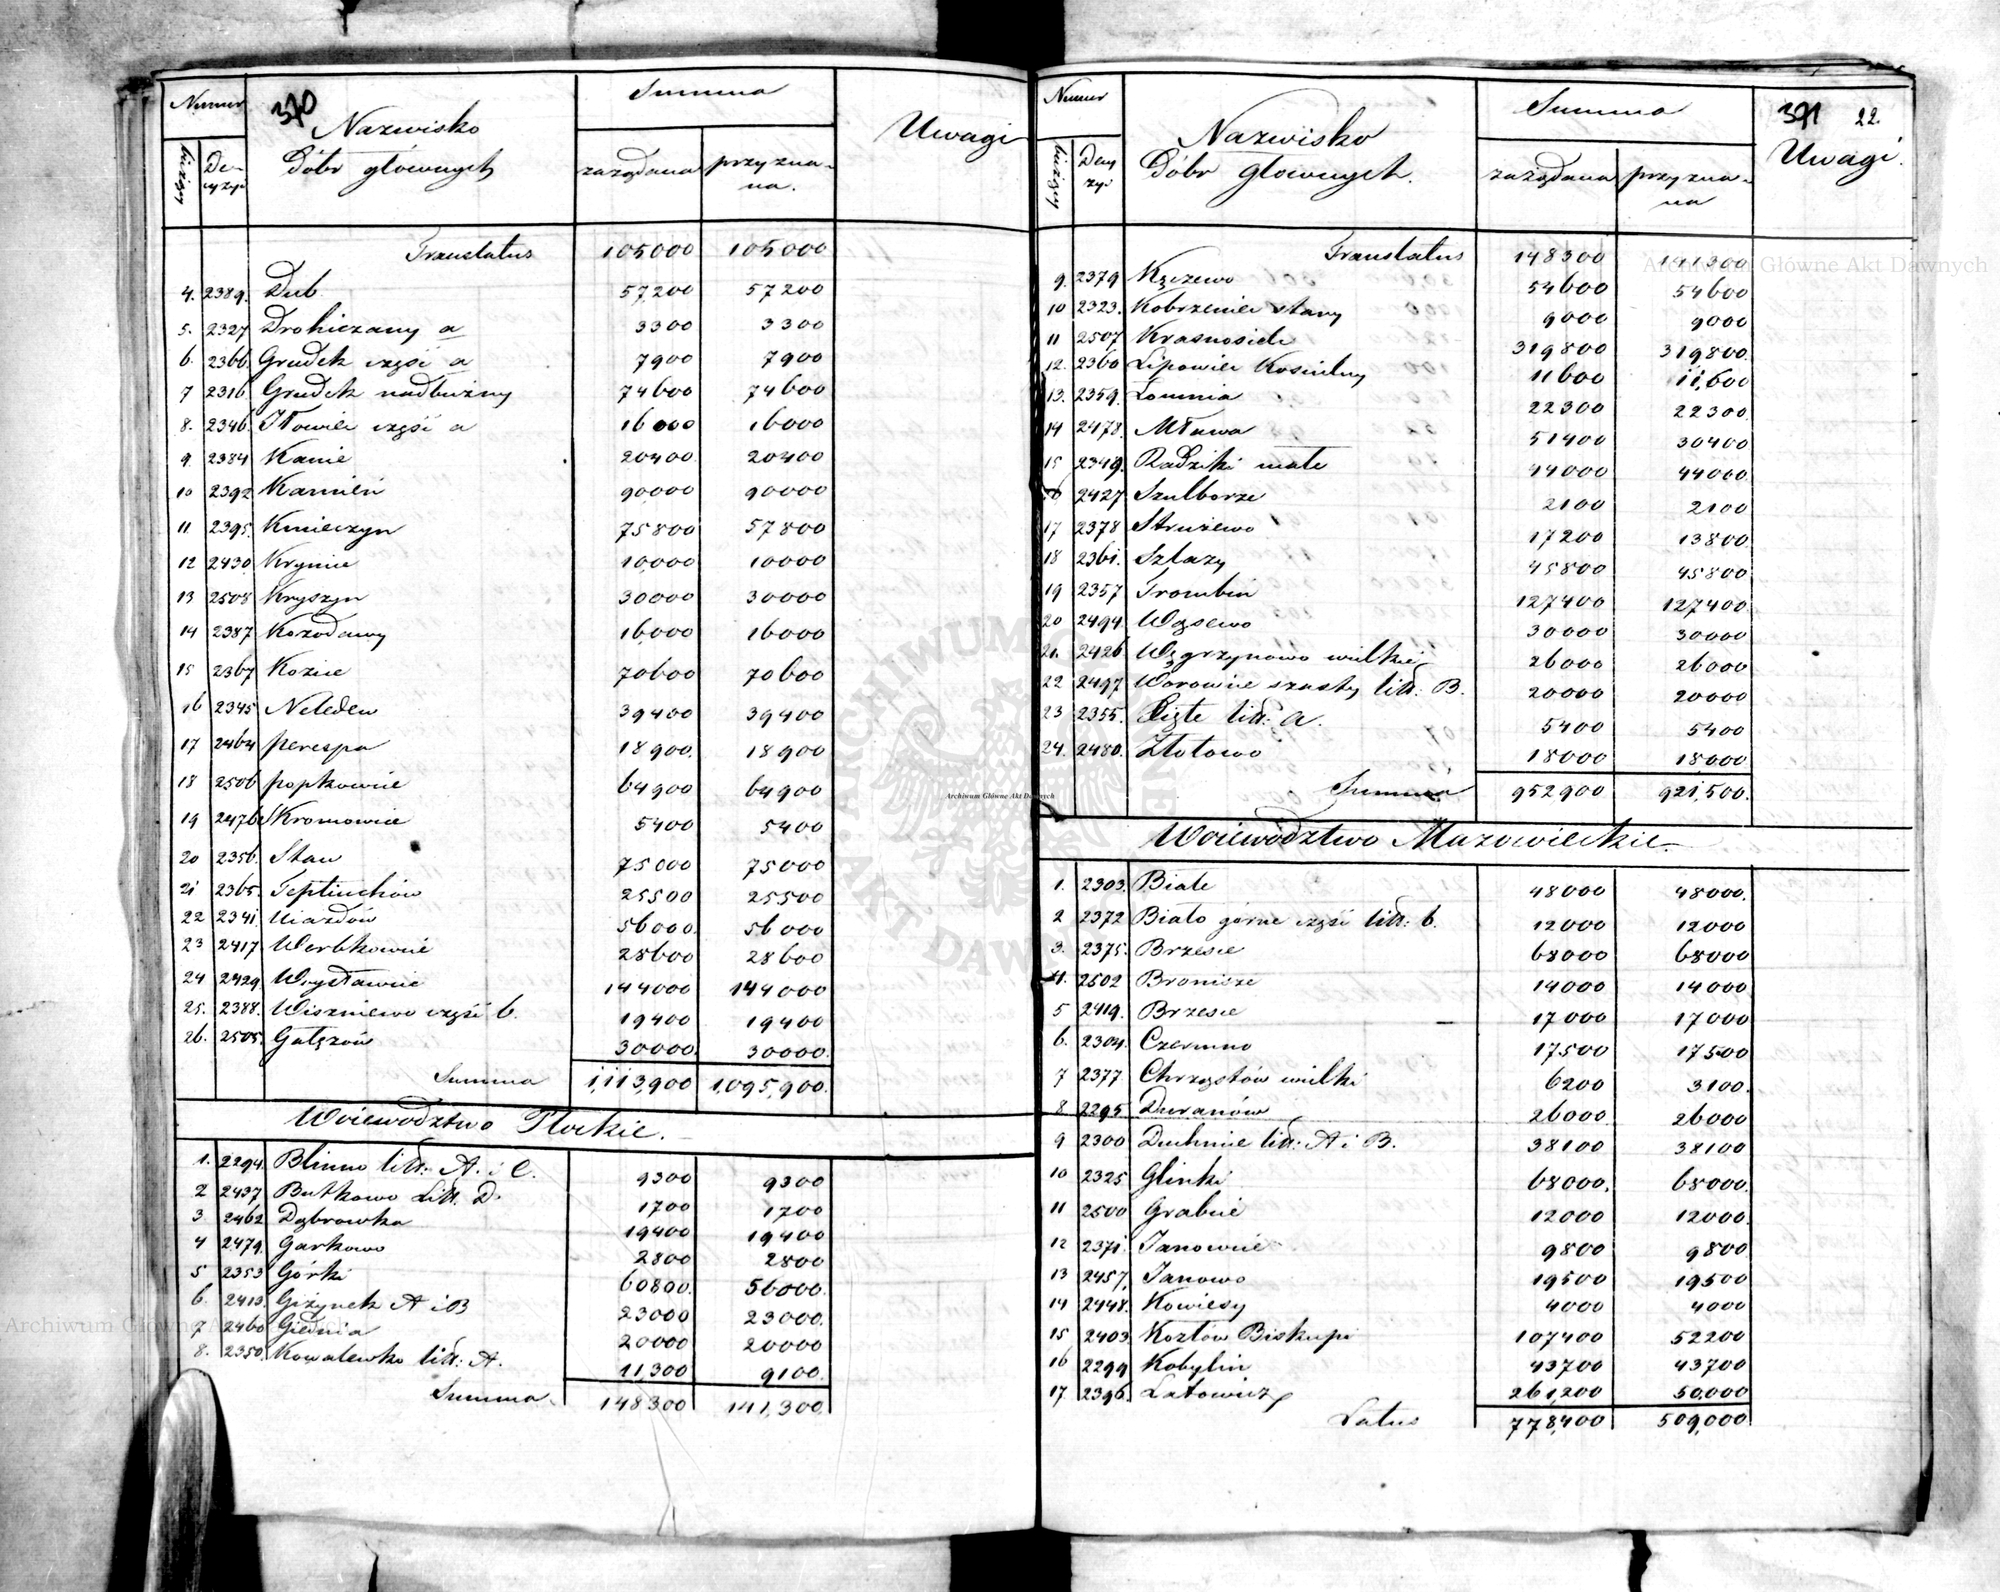 370
Numer
bieżący
Decyzyi
Nazwisko
Dóbr głównych
Summa
zażądana
przyznana.
Uwagi
Translatus 105000 105000
4. 2389. Dub 57,200 57200
5. 2327 Drohiczany a 3300 3300
6. 2366. Grudek część a 7900 7900
7 2316. Grudek nadbużny 74600 74600
8. 2346. Iłowiec część a 16000 16000
9. 2384 Kanie 20400 20400
10 2392 Kamień 90,000 90000
11 2395. Kmieczyn 75800 57800
12 2430. Krynice 10,000 10000
13 2508 Kryszyn 30000 30000
14 2387 Kozodawy 16,000 16000
15 2367 Kozice 70600 70600
16 2345 Neledew 39400 39400
17 2464 perespa 18900. 18900
18 2506 popkowice 64900 64900
19 2476 Kromowice 5400 5400
20 2356. Staw 75000 75000
21 2365. Teptiuchów 25500 25500
22 2341. Uiazdów 56000. 56000
23 2417 Werbkowice 28600 28600
24 2429. Wysławice 144000 144000
25. 2388. Wiszniewo część b. 19400 19400
26. 2505. Gałęzów 30000. 30000.
Summa 1,113,900 1,095,900.
Województwo Płockie.
1. 2294. Blinno litt: A. i C. 9300 9300
2 2437 Butkowo Litt. D. 1700 1700
3. 2462 Dąbrowka 19400 19400
4 2479. Garkowo 2800 2800
5 2353 Górki 60800. 56000.
6. 2413. Giżynek A i B 23000 23000.
7 2460 Giednia 20000 20000
8. 2350. Kowalewko litt: A. 11,300 9100.
Summa. 148300 141,300.
371 22.
Numer
bieżący
Decyzyi
Nazwisko
Dóbr głównych.
Summa
zażądana
przyznana
Uwagi.
Translatus 148300 141300
9. 2379 Kęczewo 54600 54600
10 2323. Kobrzeniec stary 9000 9000
11 2507 Krasnosielc 319800 319800.
12. 2360 Lipowiec Kościelny 11600 11,600
13. 2359. Łomnia 22300 22300.
14 2478. Mława 51400 30400
15 2349. Radziki małe 44000 44000.
16 2427. Szulborze 2100 2100
17 2378 Strużewo 17200 13800
18 2361. Szlazy 45800 45800
19 2357 Trombin 127400 127400.
20 2494. Wąsewo 30000 30000
21. 2426. Węgrzynowo wielkie 26000 26000
22 2497 Worowice szosty litt: B. 20000 20000
23 2355. Pięte litt: a. 5400 5400
24. 2480. Złotowo 18000 18000
Summa 952900 921,500.
Województwo Mazowieckie.
1. 2303. Białe 48000 48000.
2 2372 Biało górne część litt: b. 12000 12000
3. 2375. Brzesie 68000 68000
4. 2502 Bronisze 14000 14000
5 2419. Brzesie 17000 17000
6. 2304. Czermno 17500 17500
7 2377 Chrząstów wielki 6200 3100.
8 2295 Duranów 26000 26000
9 2300 Duchnice litt: A i B. 38100 38100
10 2325 Glinki 68000. 68000.
11 2500 Grabie 12000 12000.
12 2371. Janowice 9800 9800
13 2457. Janowo 19500 19500
14 2448. Kowiesy 4000 4000
15 2403 Kozłów Biskupi 107400 52200
16 2299 Kobylin 43700 43700
17. 2396. Latowicz 261,200 50,000
Latus 778,400 509,000
Archiwum Główne Akt Dawnych
Archiwum Główne Akt Dawnych
Archiwum Główne Akt Dawnych